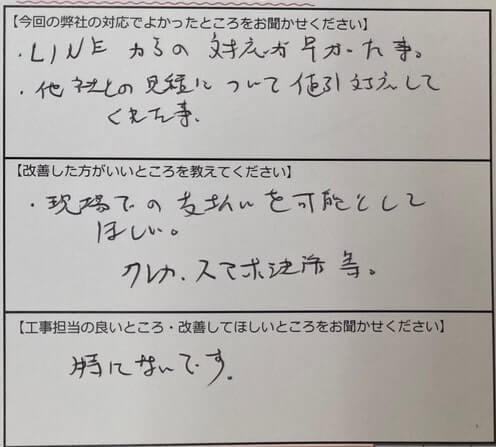 【今回の弊社の対応でよかったところをお聞かせください】
・LINEからの対応が早かった事。
・他社との見積について値引対応して
くれた事。
【改善した方がいいところを教えてください】
・現場での支払いを可能として
ほしい。
クレカ・スマホ決済等。
【工事担当の良いところ・改善してほしいところをお聞かせください】
特にないです。